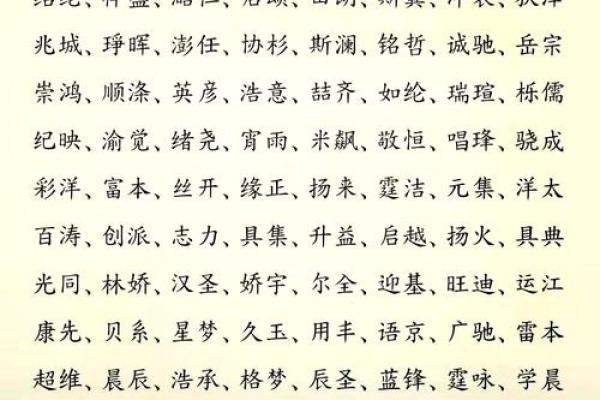 兆城、琤晖、澎任、协杉、斯澜、铭哲、诚驰、岳宗
崇鸿、顺涤、英彦、浩意、喆齐、如纶、瑞瑄、栎儒
纪映、渝觉、绪尧、宵雨、米飙、敬恒、唱琒、骁成
彩洋、富本、丝开、缘正、扬来、霆洁、元集、洋太
百涛、创派、志力、具集、升益、启越、扬火、具典
光同、林娇、汉圣、娇宇、尔全、迎基、旺迪、运江
康先、贝系、星梦、久玉、用丰、语京、广驰、雷本
超维、晨辰、浩承、格梦、辰圣、蓝锋、霆咏、学晨